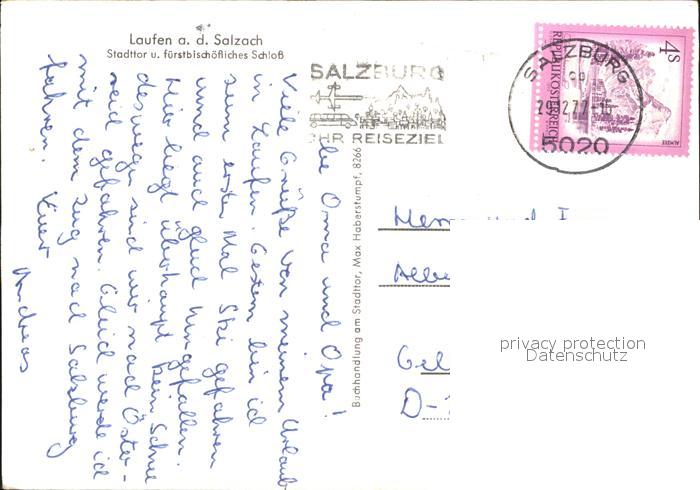 Laufen a. d. Salzach
Stadttor u. fürstbischöfliches Schloß
SALZBURG
IHR REISEZIEL
SALZBURG
5020
4s
REPUBLIK ÖSTERREICH
ALMSEE
Buchhandlung am Stadttor, Max Haberstumpf, 8266
Liebe Oma und Opa!
Viele Grüße von meinem Urlaub
in Laufen. Gestern bin ich
zum ersten Mal Ski gefahren
und auch gleich hingefallen.
Hier liegt überhaupt kein Schnee
deswegen sind wir nach Öster-
reich gefahren. Gleich werde ich
mit dem Zug nach Salzburg
fahren. Euer
Andreas
D-
privacy protection
Datenschutz